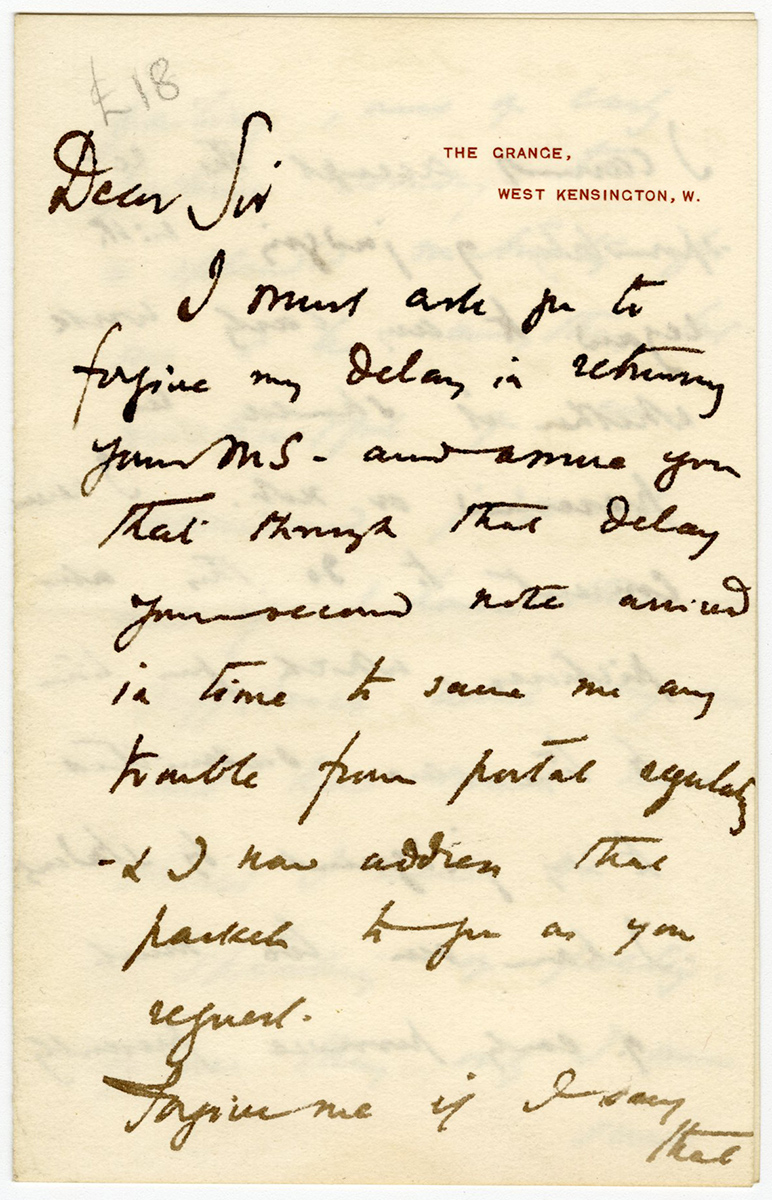 £18
THE GRANGE,
WEST KENSINGTON, W.
Dear Sir
I must ask you to
forgive my delay in returning
your MS - and assure you
that through that delay
your second note arrived
in time to save me any
trouble from postal regulations
- & I now address that
packet to you as you
request.
Forgive me if I say
that